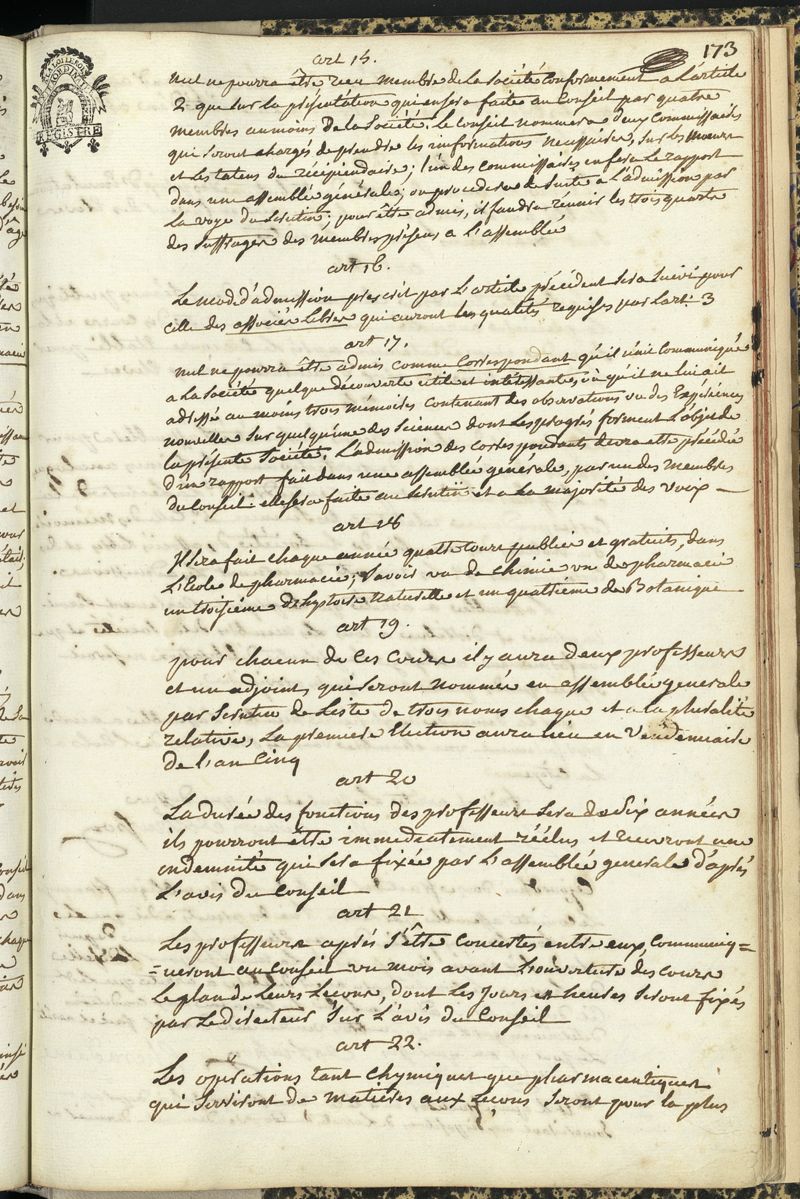 173
LA LOI LE ROI
REGISTRE
art 15.
nul ne pourra être reçu membre de la société conformement a L'article
2 que sur la présentation qui en sera faite au Conseil par quatre
membres au moins de la Société. Le Conseil nommera deux Commissaires
qui seront chargés de prendre les informations necessaires, sur les moeurs
et les talens du récipiendaire; l'un des commissaires en fera Le rapport
dans une assemblée générale; on procedera de suite a L'admission par
La voye du scrutin; pour être admis, il faudra reunir les trois quarts
des suffrages des membres présens a L'assemblée
art 16.
Le mode d'admission prescrit par L'article précédent sera suivi pour
celle des associés Libres qui auront les qualités requises par L'art. 3
art 17.
nul ne pourra être admis comme Correspondant qu'il n'ait Communiqué
a La Société quelque découverte utile et intéressante, où qu'il ne lui ait
adressé au moins trois mémoires contenant des observations ou des Expériences
nouvelles sur quelqu'une des sciences dont Les progrès forment L'objet de
la présente Société. L'admission des correspondants devra etre précédée
d'un rapport fait dans une assemblée générale, par un des membres
du Conseil: elle sera faite au scrutin et a la majorité des voix —
art 18
Il sera fait chaque année quatre cours publics et gratuits, dans
L'Ecole de pharmacie; savoir un de chimie un de pharmacie
un troisieme d'hystoire naturelle et un quatrième de Botanique
art 19.
pour chacun de ces cours il y aura deux professeurs
et un adjoint, qui seront nommés en assemblée generale
par scrutin de Liste de trois noms chaque et a la pluralité
relative, La premiere Election aura lieu en Vendemiaire
de L'an Cinq
art 20
La durée des fonctions des professeurs sera de Six années
ils pourront être immediatement réélus et recevront une
indemnité qui sera fixée par L'assemblée generale d'après
L'avis du Conseil
art 21
Les professeurs après s'être Concertés entre eux, Communiq=
=ueront au Conseil un mois avant L'ouverture des cours
Le plan de Leurs Leçons, dont Les jours et heures seront fixés
par Le directeur sur L'avis du Conseil
art 22.
Les opérations tant chymiques que pharmaceutiques
qui serviront de matières aux Leçons seront pour la plus